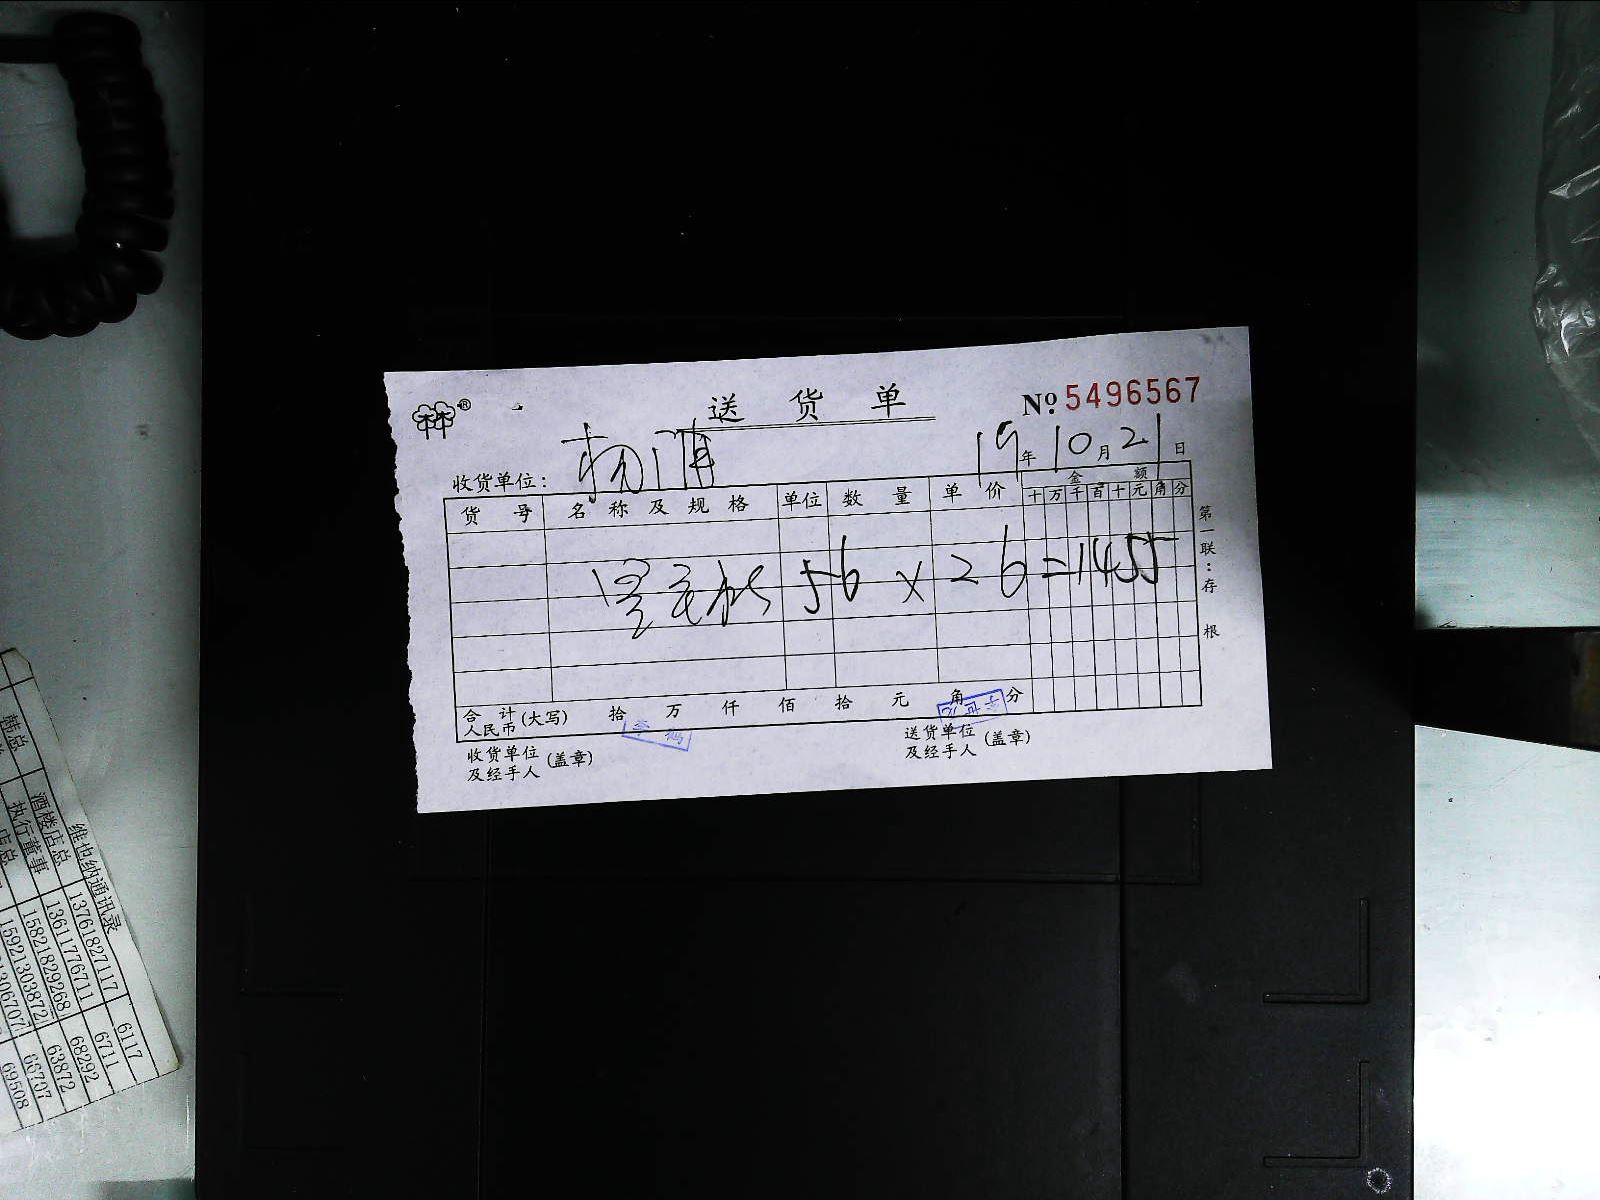 送货单
№ 5496567
收货单位: 杨浦 19年10月21日
货号 名称及规格 单位 数量 单价 金额
十万千百十元角分
56 × 26 = 1455
第一联:存根
合计人民币(大写) 拾 万 仟 佰 拾 元 角 分
收货单位及经手人(盖章) 送货单位及经手人(盖章)
维也纳通讯录
酒楼店总 13761827117 6117
执行董事 13611776711 6711
15821829268 68292
15921303872 63872
66707
69508
韩总
店总